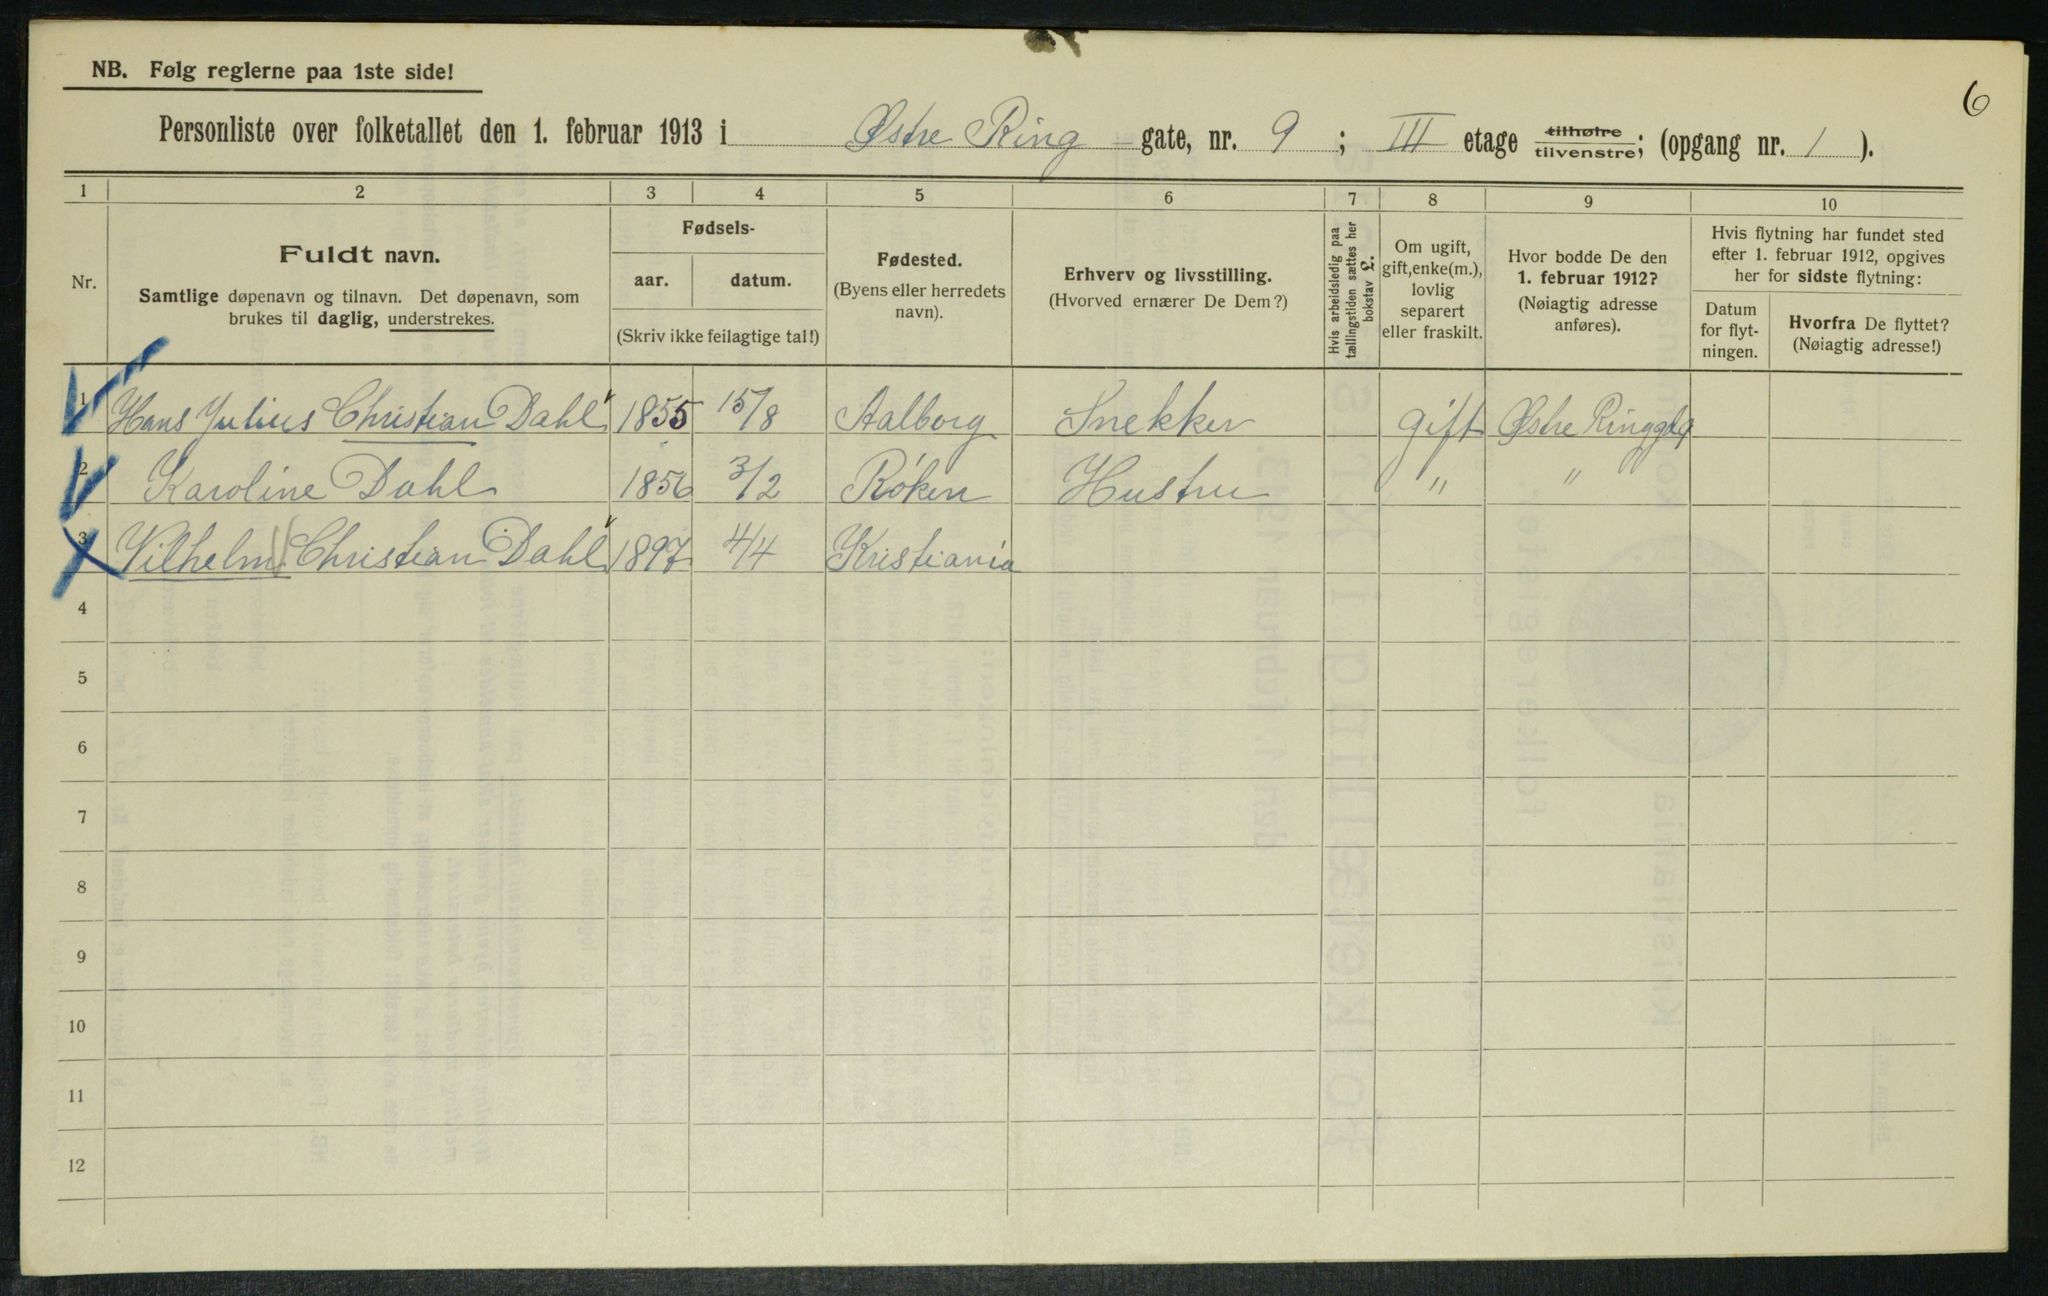 6
NB. Følg reglerne paa 1ste side!
Personliste over folketallet den 1. februar 1913 i Østre Ring gate, nr. 9 ; III etage tilhøire tilvenstre; (opgang nr. 1 ).
1 2 3 4 5 6 7 8 9 10
Nr.
Fuldt navn.
Samtlige døpenavn og tilnavn. Det døpenavn, som
brukes til daglig, understrekes.
Fødsels-
aar. datum.
(Skriv ikke feilagtige tal!)
Fødested.
(Byens eller herredets
navn).
Erhverv og livsstilling.
(Hvorved ernærer De Dem?)
Hvis arbeidsledig paa
tællingstiden sættes her
bokstav £.
Om ugift,
gift, enke(m.),
lovlig
separert
eller fraskilt.
Hvor bodde De den
1. februar 1912?
(Nøiagtig adresse
anføres).
Hvis flytning har fundet sted
efter 1. februar 1912, opgives
her for sidste flytning:
Datum
for flyt-
ningen.
Hvorfra De flyttet?
(Nøiagtig adresse!)
1 Hans Julius Christian Dahl 1855 15/8 Aalborg Snekker gift Østre Ringg 9
2 Karoline Dahl 1856 3/2 Røken Hustru " "
3 Vilhelm Christian Dahl 1897 4/4 Kristiania
4
5
6
7
8
9
10
11
12